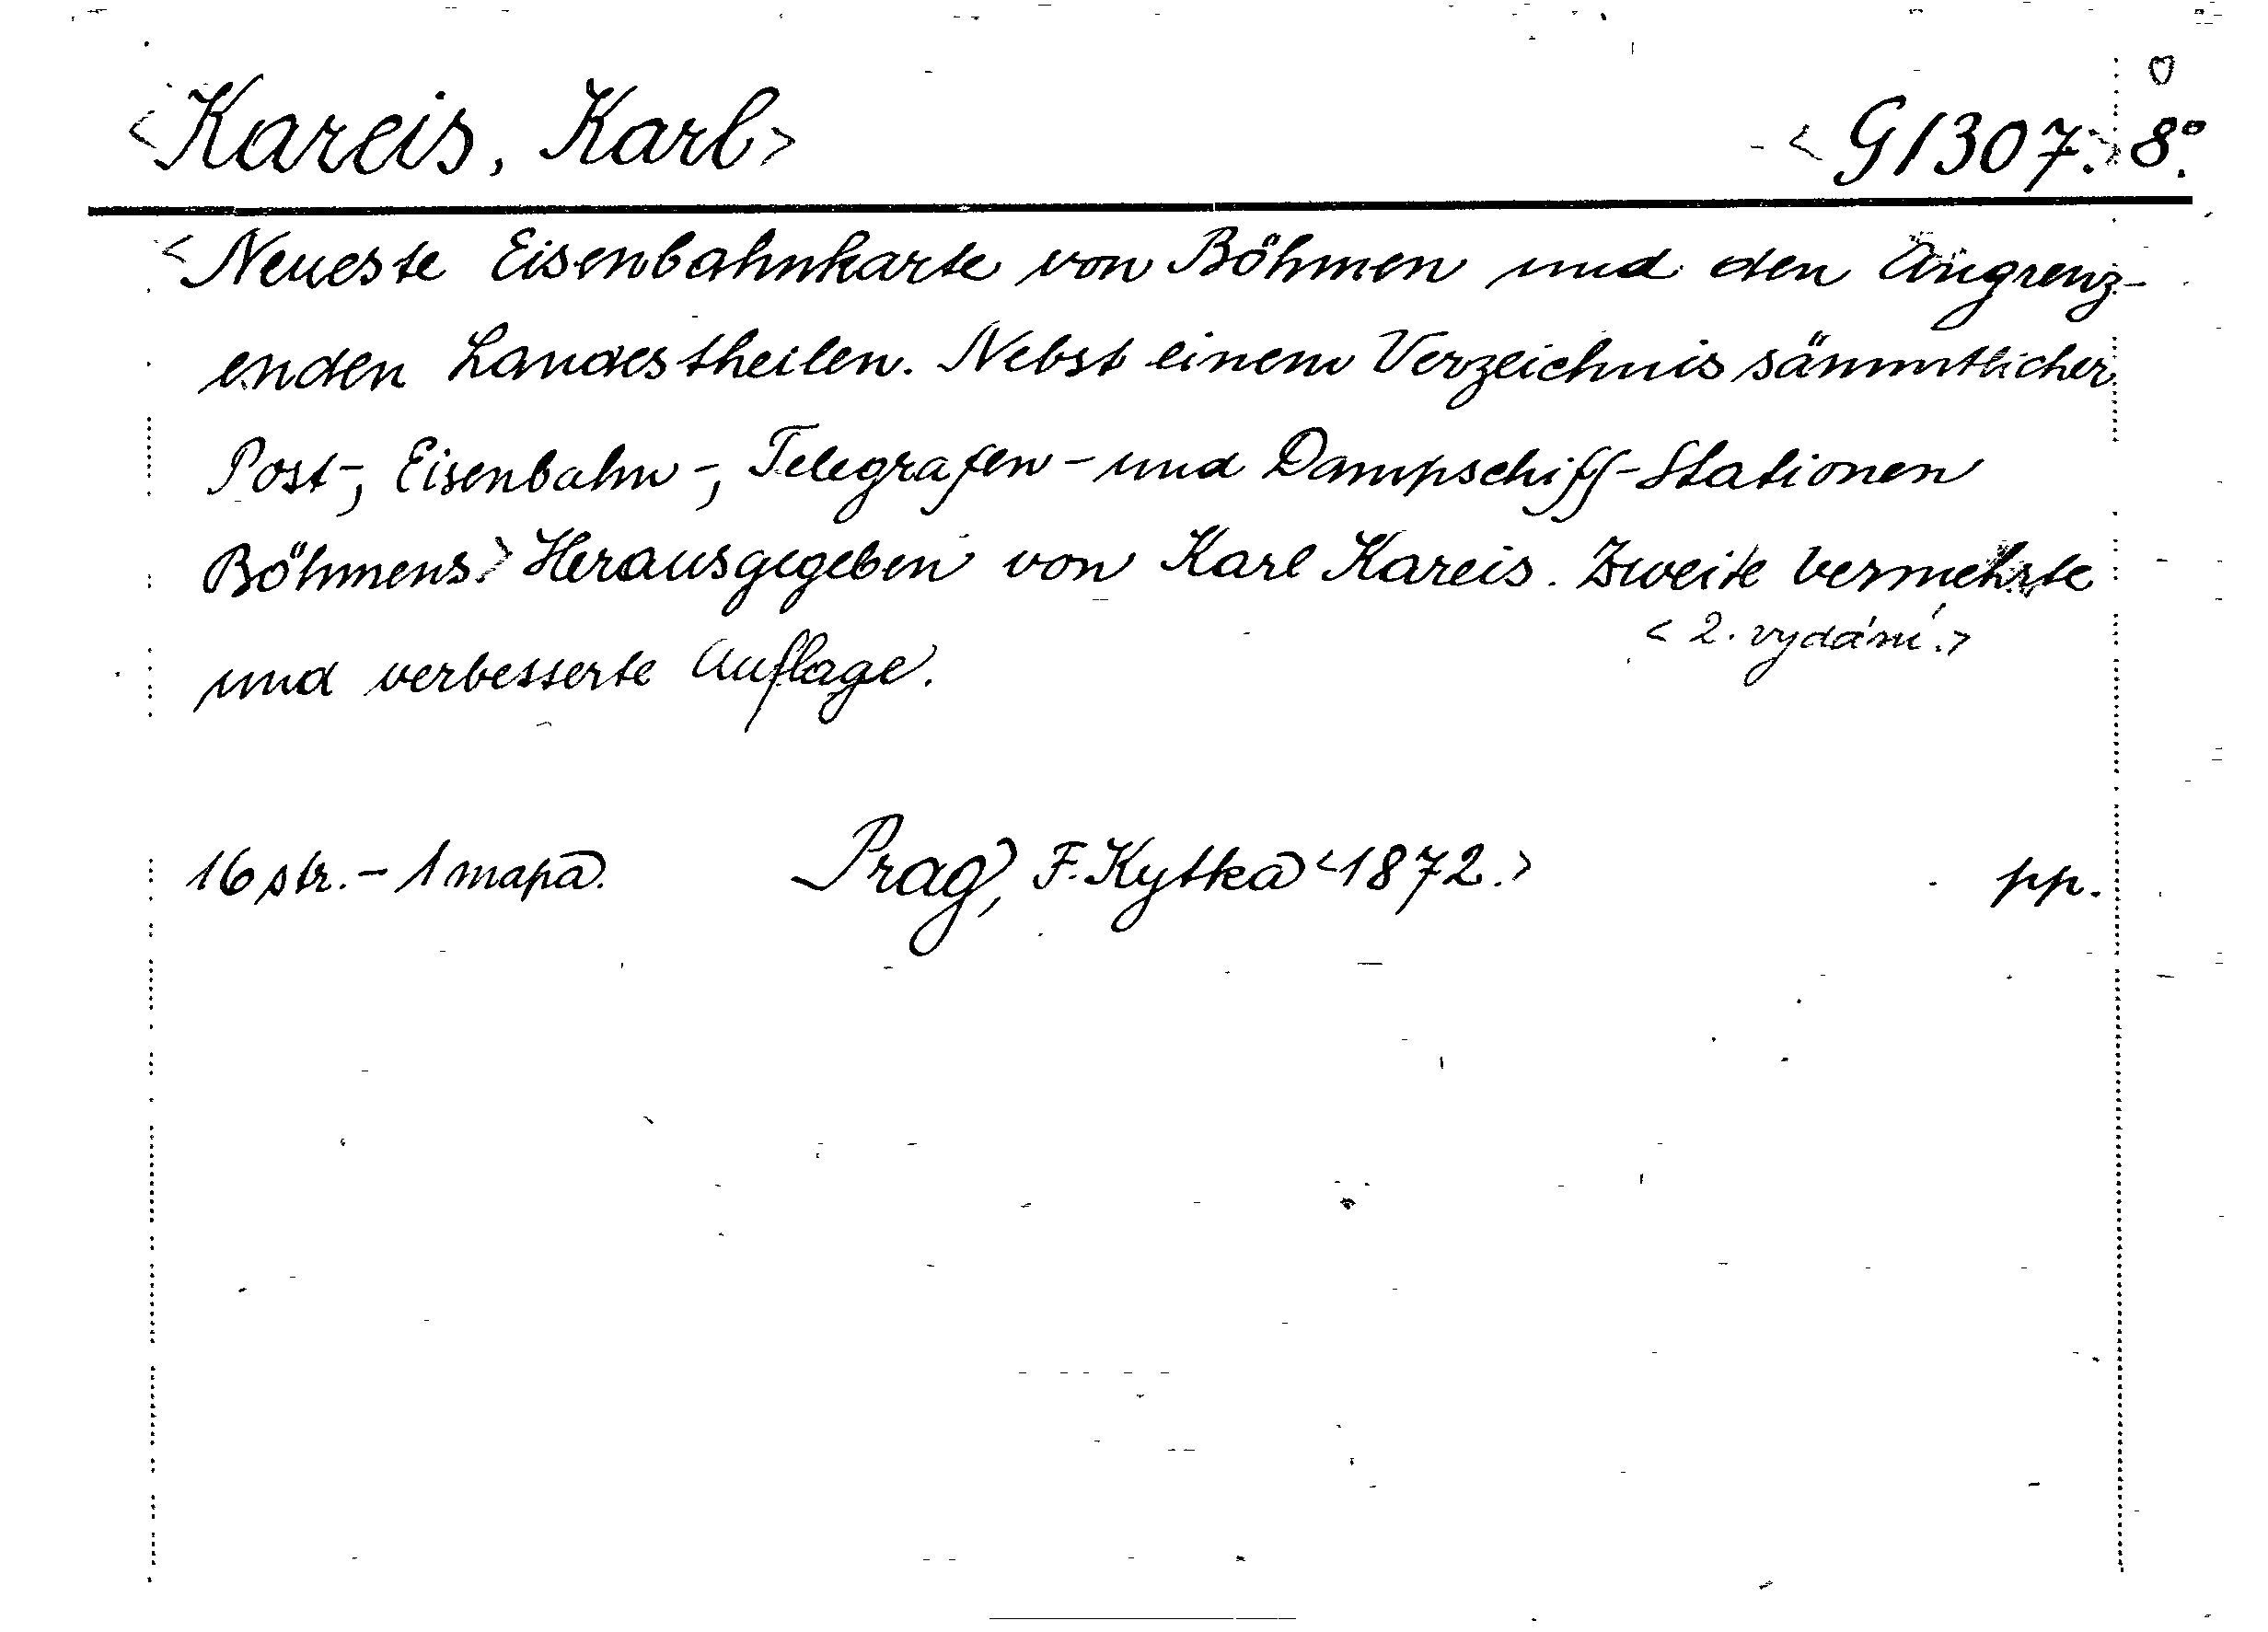 <Kareis, Karl> <G1307.> 8°.
<Neueste Eisenbahnkarte von Böhmen und den Angrenz-
enden Landestheilen. Nebst einem Verzeichnis sämmtlicher
Post-, Eisenbahn-, Telegrafen- und Dampschiff-Stationen
Böhmens.> Herausgegeben von Karl Kareis. Zweite vermehrte
<2. vydání.>
und verbesserte Auflage.
16 str. - 1 mapa. Prag, F. Kytka <1872.> pp.